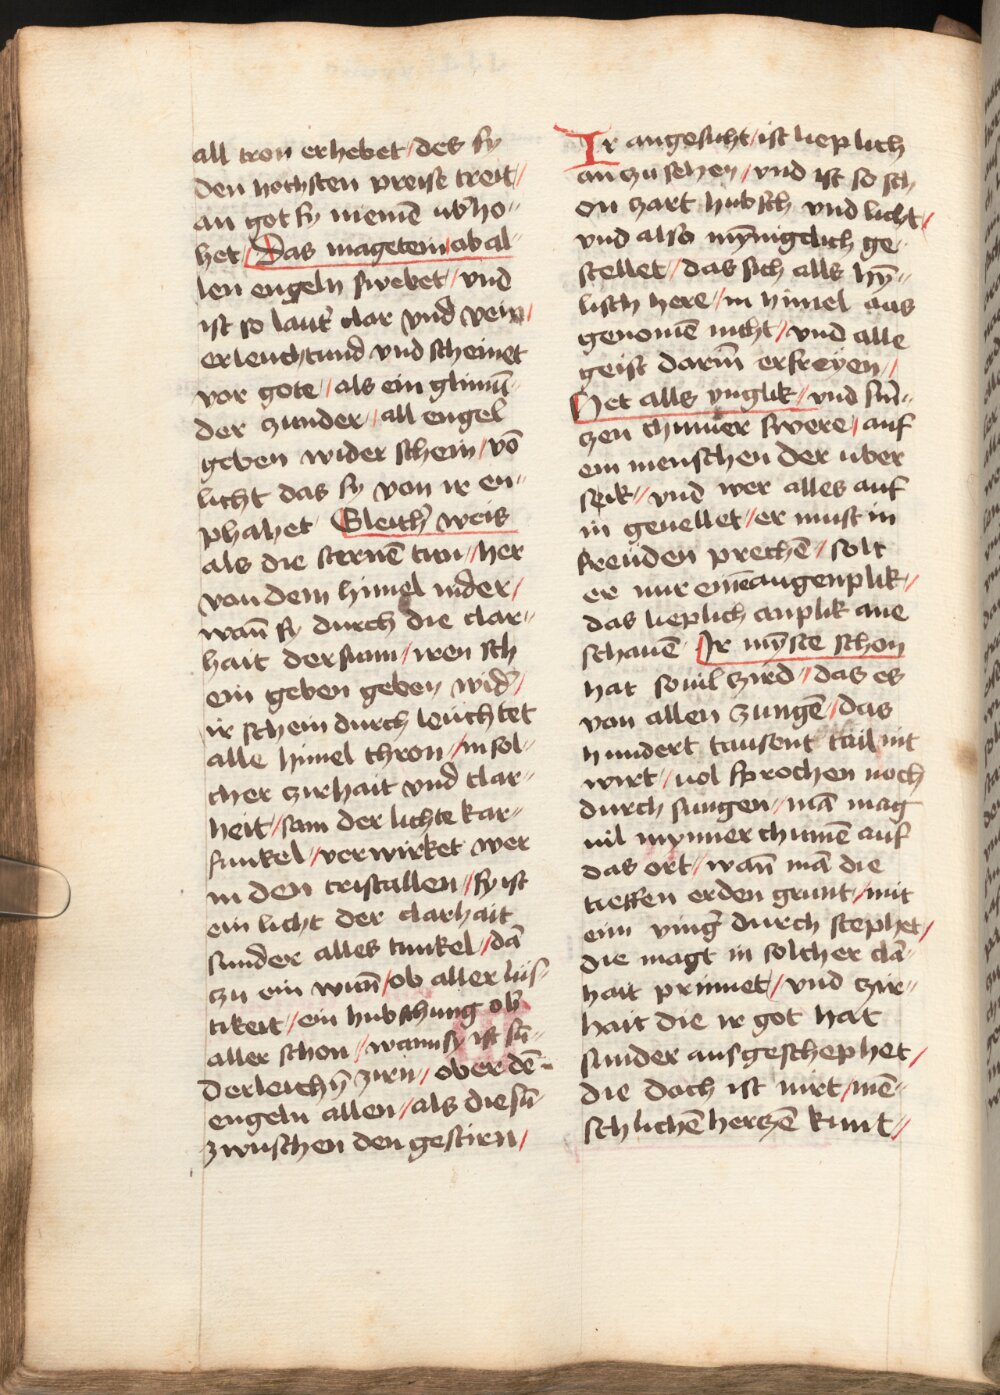 all tron erhebet / des sy
den hochsten preise treit //
an got sy niemē vb̄ho //
het / Das magetein / ob al //
len engeln swebet / vnd
ist so laut̄ clar vnd vein /
erleuchtund vnd scheinet
vor gote / als ein glimū //
der zunder / all engel
geben wider schein / vō
licht das sy von ir en //
phahet Gleich̄ weis
als die sternē tun / her
von dem himel nider /
wan̄ sy durch die clar //
hait der sunn / iren sch
ein geben geben wid̄ /
ir schein durch leüchtet
alle himel thron / in sol //
cher zirhait vnd clar //
heit / sam der lichte kar //
funkel / verwirket wer
in den cristallen / sy ist
ein licht der clarhait
sunder alles tunkel / dā
zu ein wun̄ / ob aller lus //
tikeit / ein hubschung ob̄
aller schon / wann sy ist sū //
derleich̄n̄ zirn / ober dē //
engeln allen / als die sū //
zwuschen den gestirn /
Ir angesicht / ist lieplich
an zu sehen / vnd ist so sch
on zart hubsch vnd licht /
vnd also mȳnigclich ge //
stellet / das sich alls hȳ //
lisch here / in himel aus
genomē nicht / vnd alle
geist darin̄ erfreyen //
Het alls vnglik / vnd sūn̄ //
zen chumer swere / auf
ein menschen der uber
spik // vnd wer alles auf
in geuellet / er must in
freüden prechē / solt
er nur einē augenplik //
das lieplich anplik ane
schauē Ir mȳste schon
hat souil zird / das es
von allen zungē / das
hundert tausent tail nit
wirt / uol sprochen noch
durch sungen / mā mag
uil mynner chumē auf
das ort / wan̄ mā die
tieffen erden grunt / mit
eim vinḡ durch stephet /
die magt in solcher clā //
hait prinnet / vnd zir //
hait die ir got hat
sunder ausgeschephet /
die doch ist nirt / mē //
schlichē herczē kunt //